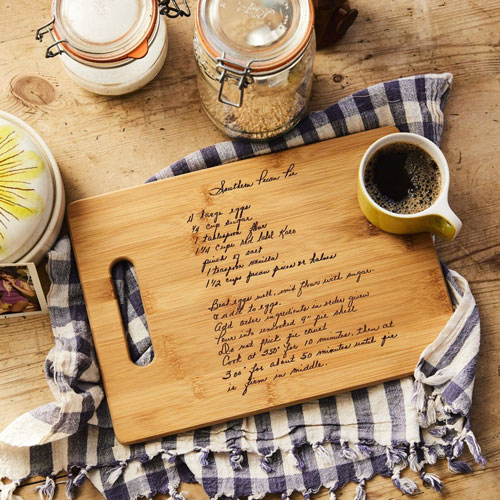 Southern Pecan Pie
4 large eggs
3/4 cup sugar
1 tablespoon flour
1 1/4 cups red label Karo
pinch of salt
1 teaspoon vanilla
1 1/2 cups pecan pieces or halves
Beat eggs well, mix flour with sugar.
& add to eggs.
Add other ingredients in order given
Pour into unbaked 9" pie shell
Do not prick crust
Cook at 350° for 10 minutes, then at
300° for about 50 minutes until pie
is firm in middle.